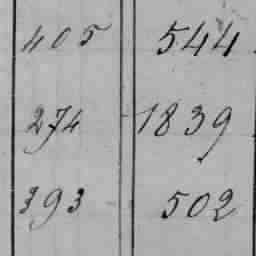 405 544
274 1839
393 502